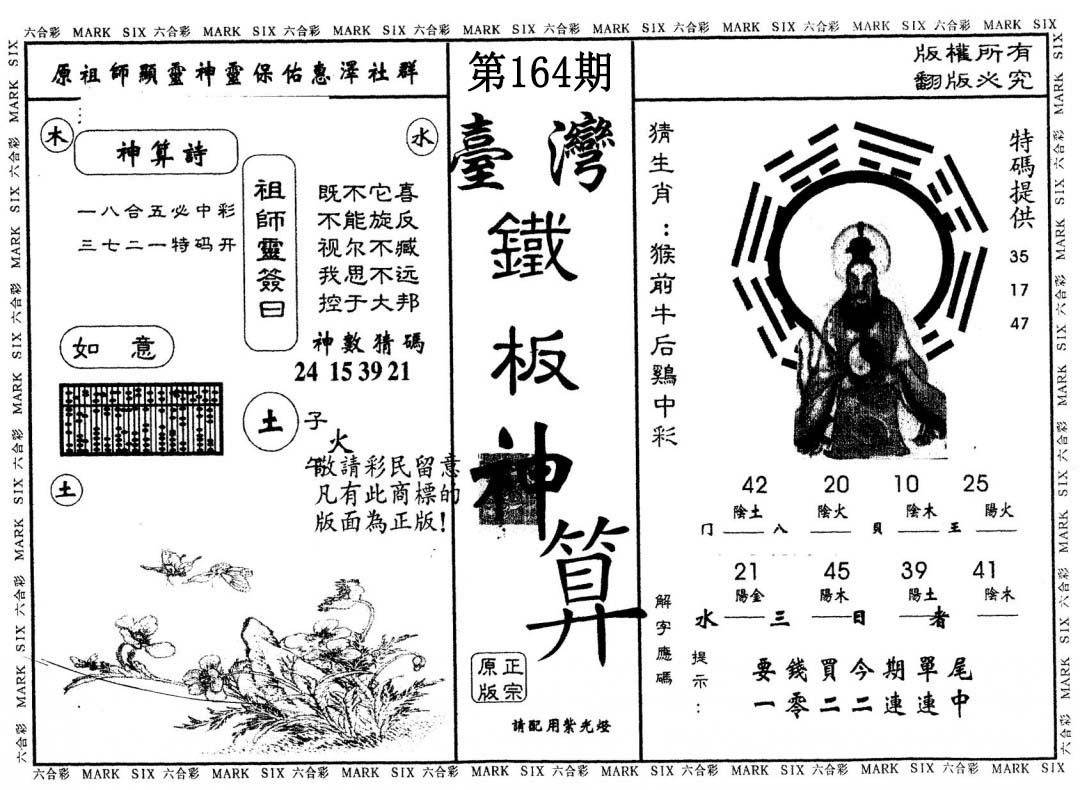 六合彩 MARK SIX 六合彩 MARK SIX 六合彩 MARK SIX 六合彩 MARK SIX 六合彩 MARK SIX 六合彩 MARK SIX 六合彩 MARK SIX 六合彩 MARK SIX
原祖師顯靈神靈保佑惠澤社群
第164期
版權所有
翻版必究
木
神算詩
水
一八合五必中彩
三七二一特码开
祖師靈簽曰
既不它喜
不能旋反
视尔不臧
我思不远
控于大邦
神數猜碼
24 15 39 21
如 意
土
子
火
午
敬請彩民留意
凡有此商標的
版面為正版!
土
臺灣
鐵
板
神
算
正宗
原版
請配用紫光燈
猜生肖：猴前牛后鷄中彩
特碼提供
35
17
47
42 20 10 25
陰土 陰火 陰木 陽火
门 八 貝 王
21 45 39 41
陽金 陽木 陽土 陰木
水 三 日 者
解字應碼
提示：
要錢買今期單尾
一零二二連連中
六合彩 MARK SIX 六合彩 MARK SIX 六合彩 MARK SIX 六合彩 MARK SIX 六合彩 MARK SIX 六合彩 MARK SIX 六合彩 MARK SIX 六合彩 MARK SIX